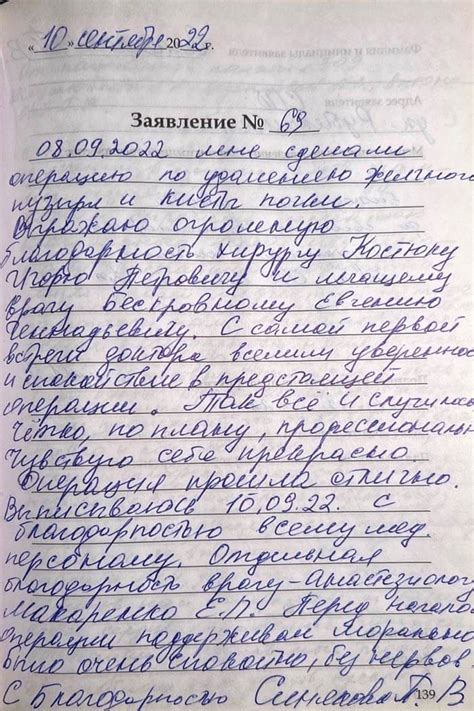 «10» сентября 2022г.
Заявление № 69
08.09.2022 мне сделали
операцию по удалению желчного
пузыря и кисты почки.
Выражаю огромную
благодарность хирургу Костюку
Игорю Петровичу и лечащему
врагу Бескровному Евгению
Геннадьевичу. С самой первой
встречи доктора вселили увереннос
и спокойствие в предстоящей
операции. Так всё и случилос
Чётко, по плану, профессиональн
Чувствую себе прекрасно.
Операция прошла отлично.
Выписываюсь 10.09.22. с
благодарностью всему мед.
персоналу. Отдельная
благодарность врагу-анастезиолог
Макаренко Е.П. Перед начало
операции поддерживал морально
было очень спокойно, без нервов
С Благодарностью В
139